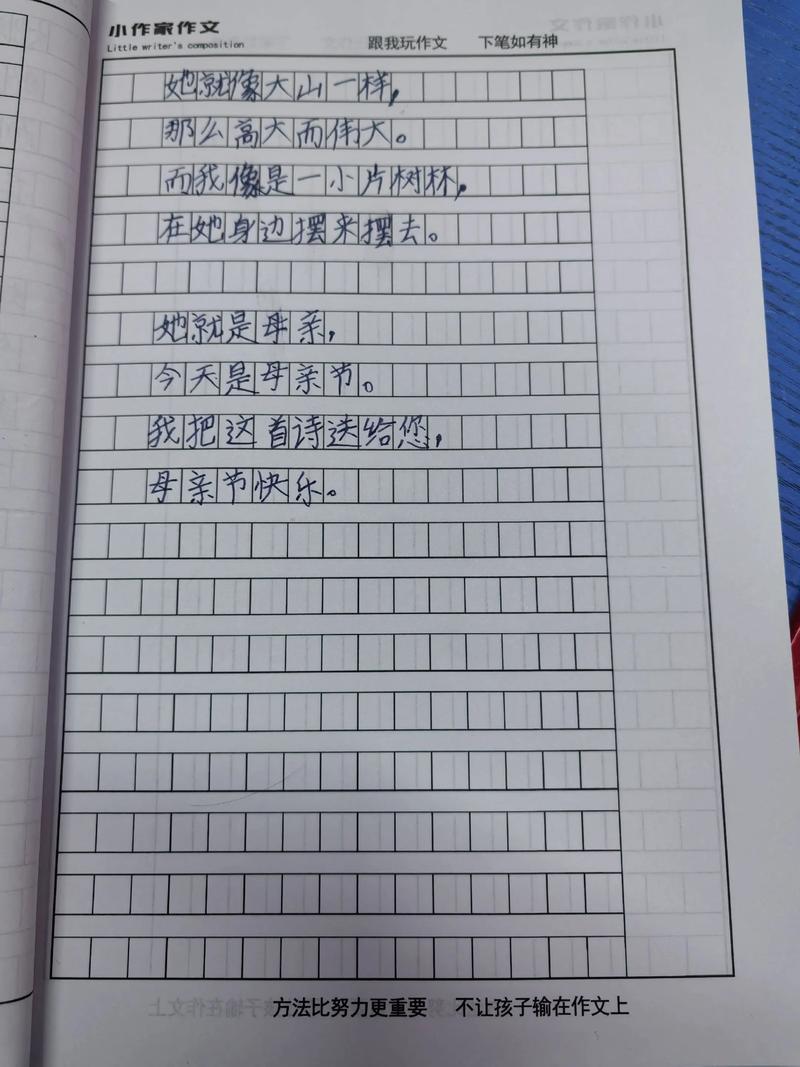 小作家作文
Little writer's composition 跟我玩作文 下笔如有神
她就像大山一样,
那么高大而伟大。
而我像是一小片树林,
在她身边摆来摆去。
她就是母亲,
今天是母亲节。
我把这首诗送给您,
母亲节快乐。
方法比努力更重要 不让孩子输在作文上